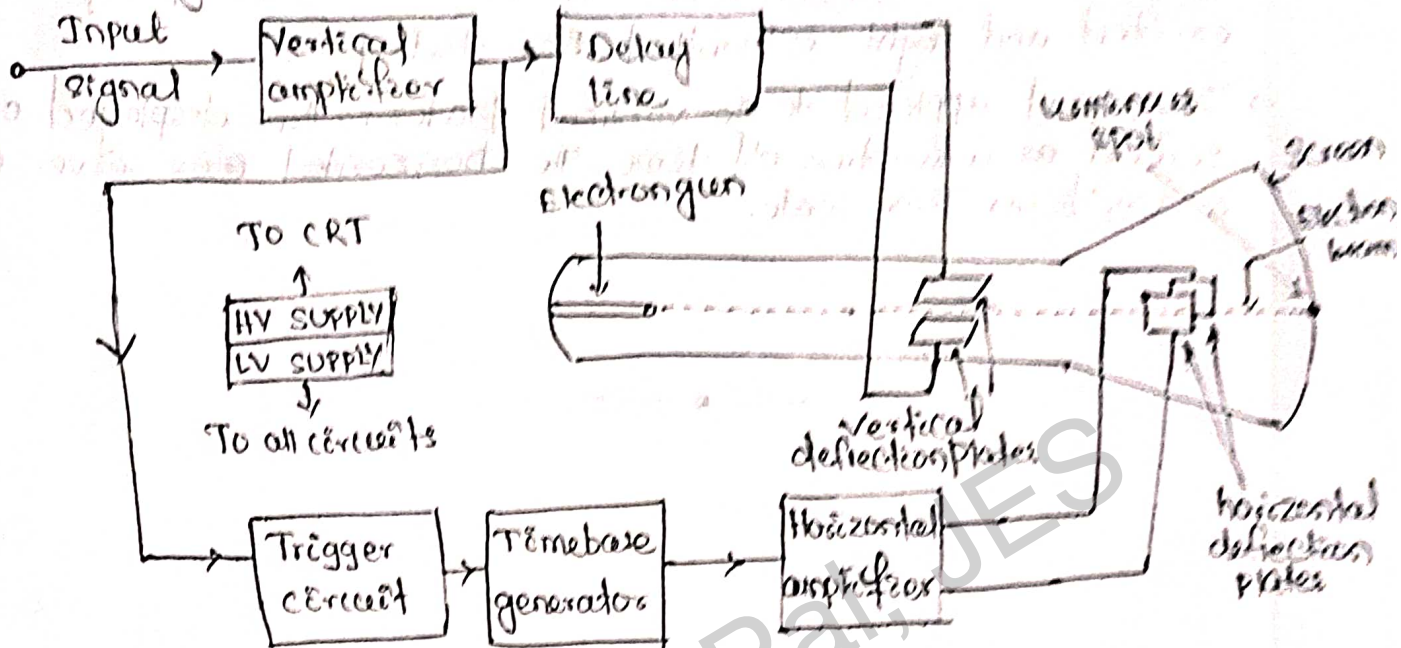 Input
signal
Vertical
amplifier
Delay
line
luminous
spot
Screen
Electrongun
TO CRT
HV SUPPLY
LV SUPPLY
To all circuits
Vertical
deflection plates
horizontal
deflection
plates
Trigger
circuit
Timebase
generator
Horizontal
amplifier
Pal, JES